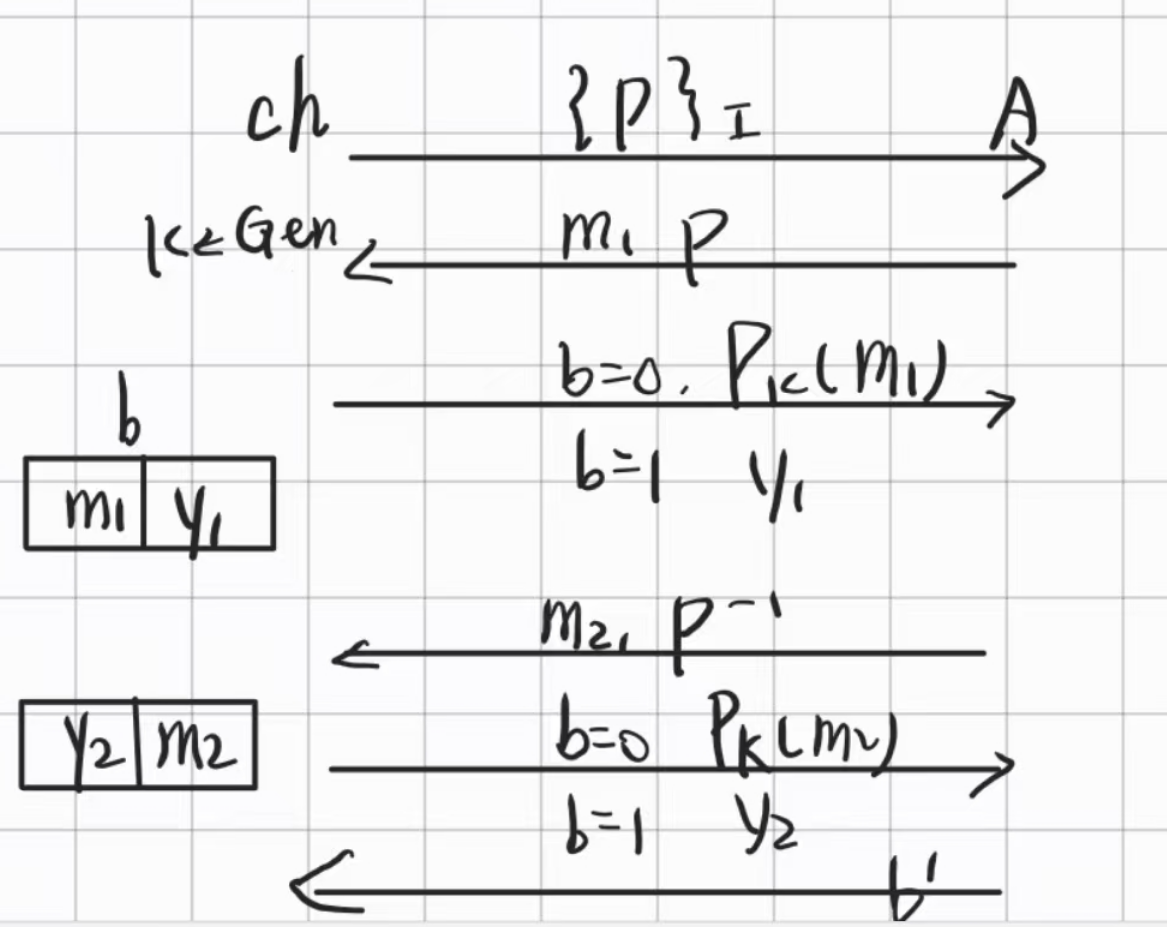 ch {P}_I A
k←Gen m₁ P
b=0. P_k(m₁)
b
b=1 y₁
m₁ y₁
m₂, P⁻¹
y₂ m₂ b=0 P_k(m₂)
b=1 y₂
b'